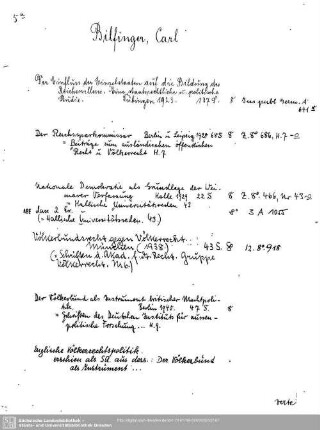 5a
Bilfinger, Carl
Der Einfluss der Einzelstaaten auf die Bildung des
Reichswillens. Eine staatsrechtliche u. politische
Studie. Tübingen 1923. 8
Der Reichssparkommissar Berlin u Leipzig 1928 8 Z. 8° 686, H.7
= Beiträge zum ausländischen öffentlichen
Recht u Völkerrecht H.7
Nationale Demokratie als Grundlage der Wei-
marer Verfassung Halle 1929 22 S 8 Z. 8° 466, Nr 43
= Hallische Universitätsreden 43
Dass 2 Ex. 8° 3 A
(= Hallische Universitätsreden. 43)
Völkerbundsrecht gegen Völkerrecht.
München (1938) 43 S. 8 12. 8° 918
(= Schriften d. Akad. f. Dt. Recht. Gruppe
Völkerrecht. Nr 6)
Der Völkerbund als Instrument britischer Machtpoli-
tik. Berlin 1940. 47 S. 8
= Schriften des Deutschen Instituts für aussen-
politische Forschung... H.9.
Englische Völkerrechtspolitik.
erschien als SU aus ders.: Der Völkerbund
als Instrument ...
verte